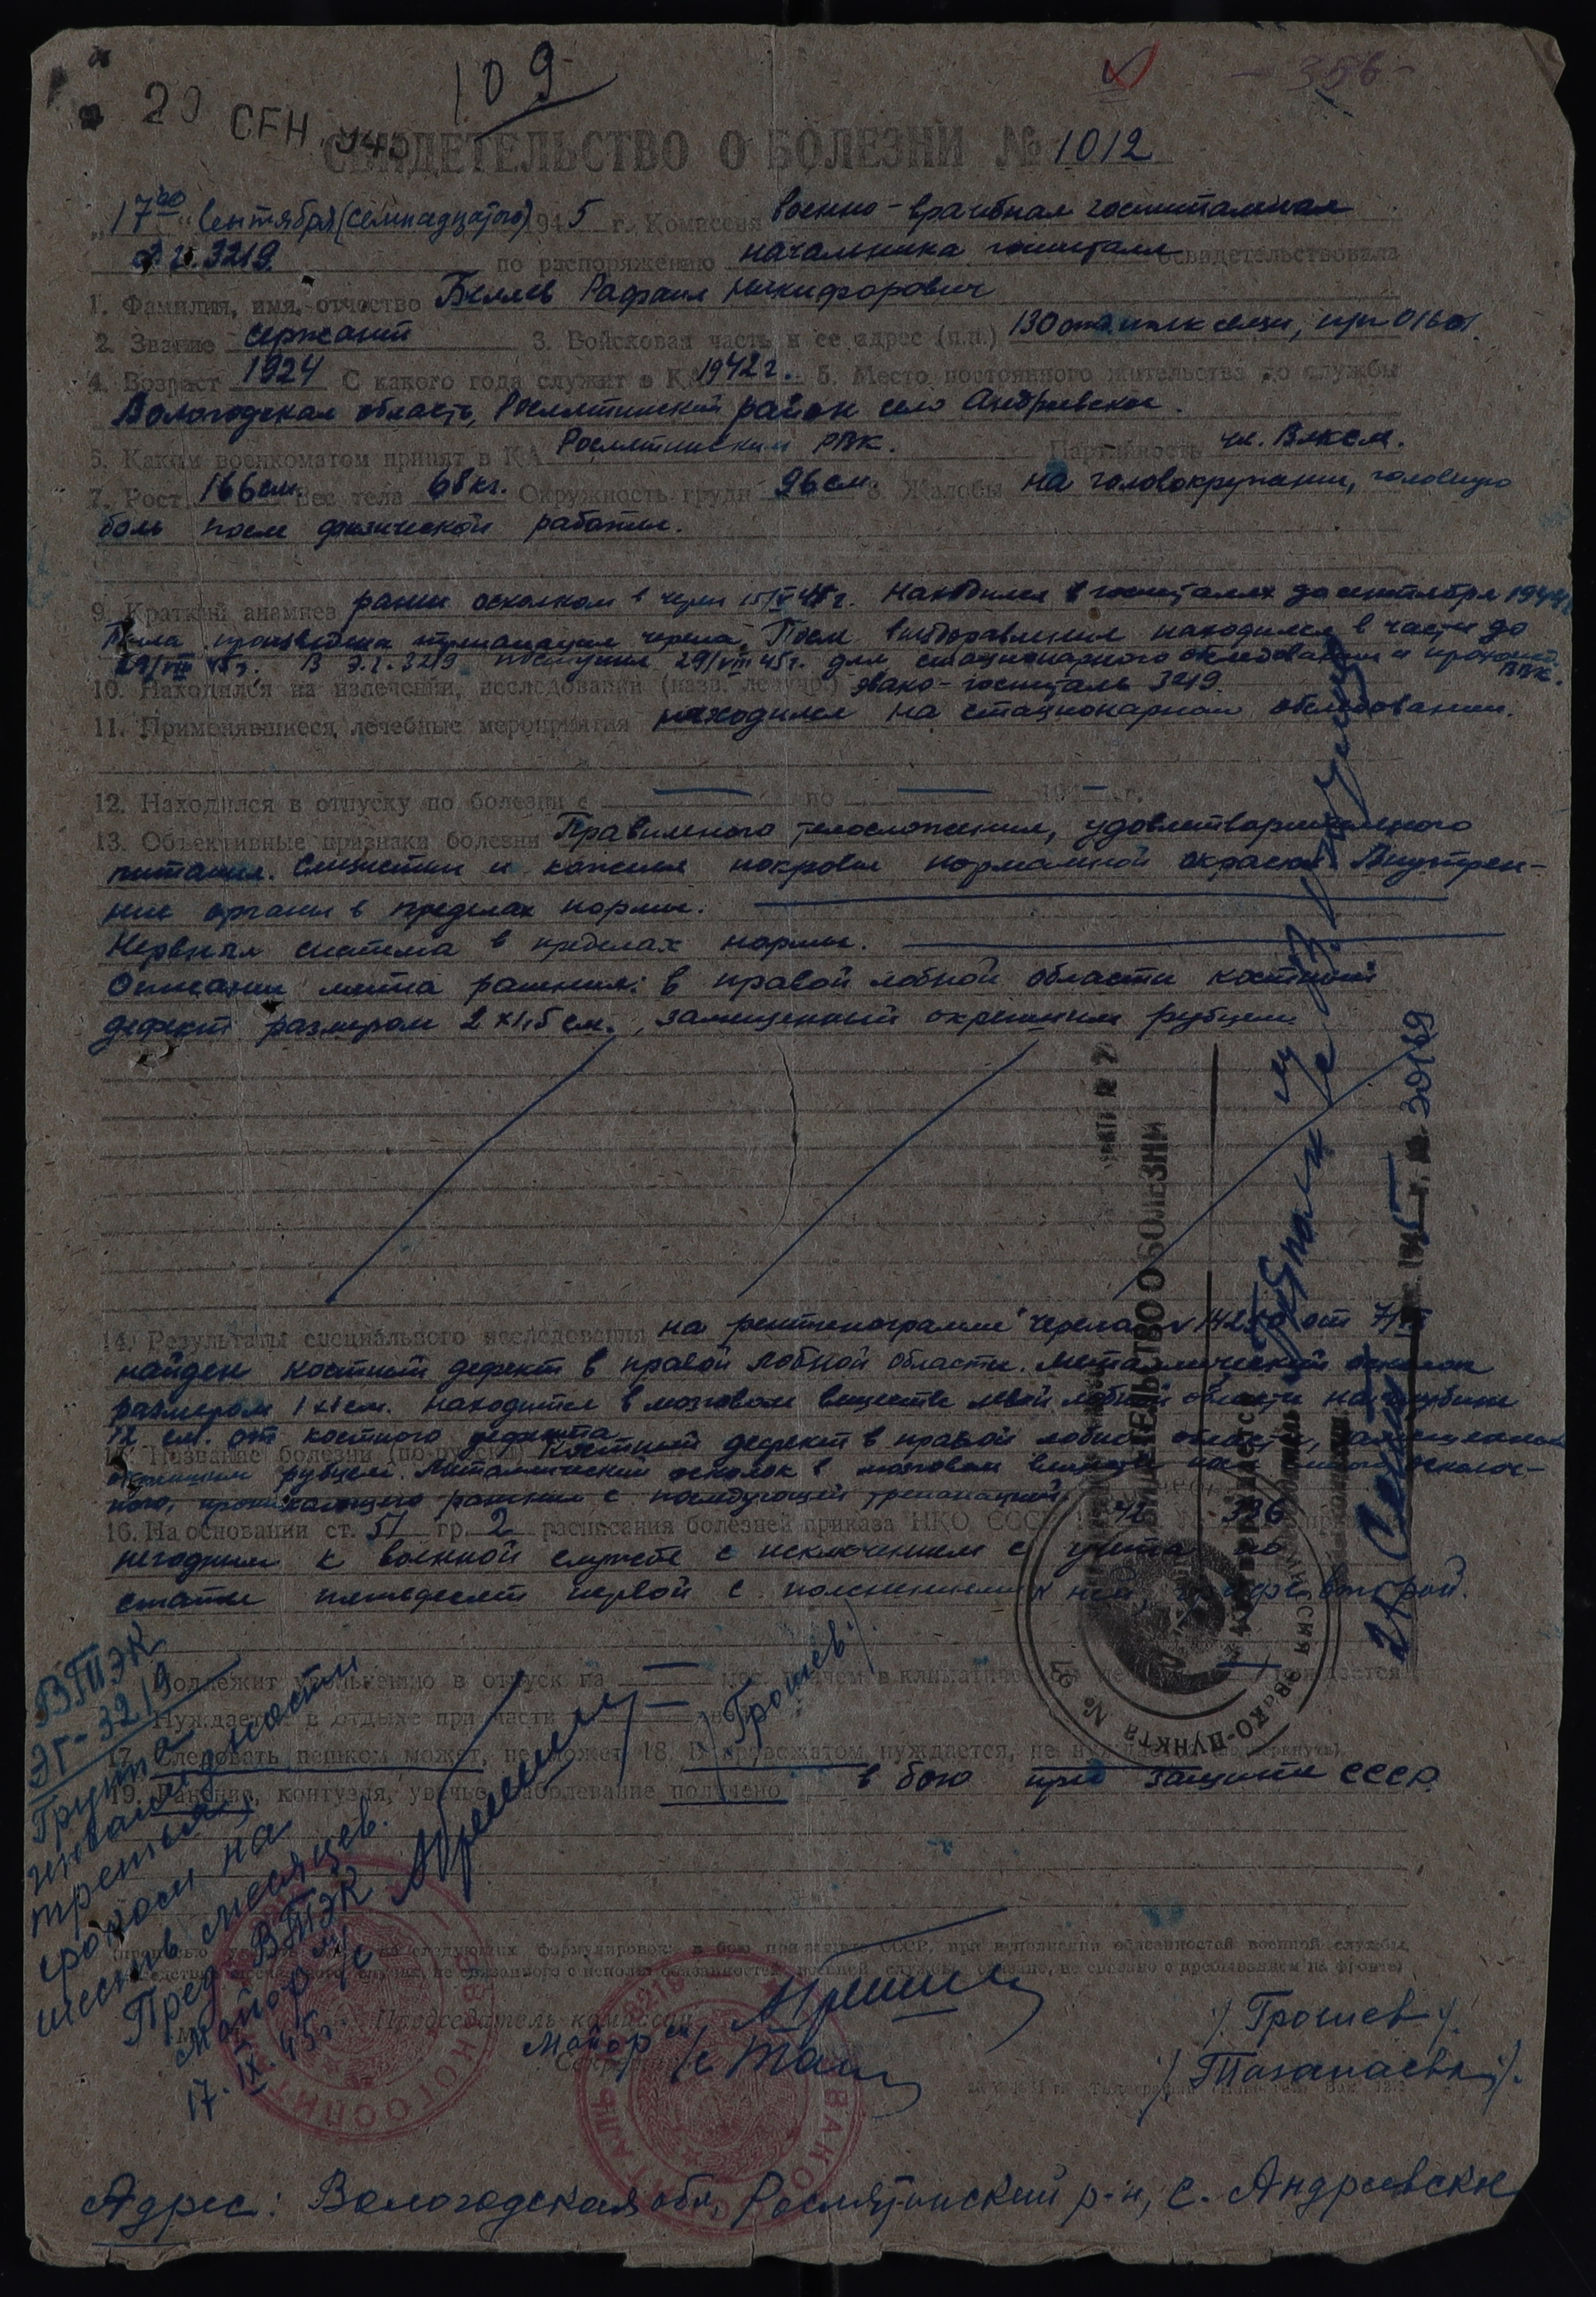 109
356
20 СЕН 1945
СВИДЕТЕЛЬСТВО О БОЛЕЗНИ № 1012
"17го" Сентября (семнадцатого) 1945 г. Комиссия военно-врачебная госпитальная
Э.Г. 3219 по распоряжению начальника госпиталя освидетельствовала
1. Фамилия, имя, отчество Беляев Рафаил Никифорович
2. Звание сержант 3. Войсковая часть и ее адрес (п.п.) 130 полк связи,
4. Возраст 1924 С какого года служит в КА 1942 г. 5. Место постоянного жительства до службы
Вологодская область, Рослятинский район село Андреевское.
5. Каким военкоматом принят в КА Рослятинским РВК. Партийность чл. Влксм.
7. Рост 166 см. Вес тела 68 кг. Окружность груди 96 см. 8. Жалобы на головокружение, головную
боль после физической работы.
9. Краткий анамнез ранен осколком в череп Находился в госпиталях до сентября 1944
Была произведена трепанация черепа. После выздоравления находился в части до
29/VIII 45 г. В Э.Г. 3219 поступил 29/VIII 45 г. для стационарного обследования и прохожд. ВВК.
10. Находился на излечении, исследовании (назв. леч. учр.) эвако-госпиталь 3219.
11. Применявшиеся лечебные мероприятия находился на стационарном обследовании.
12. Находился в отпуску по болезни с — по — 19 — г.
13. Объективные признаки болезни Правильного телосложения, удовлетворительного
питания. Слизистые и кожные покровы нормальной окраски. Внутрен-
ние органы в пределах нормы.
Нервная система в пределах нормы.
Описание места ранения: в правой лобной области костный
дефект размером 2 х 1,5 см., замещенный окрепшим рубцем.
14. Результаты специального исследования на рентгенограмме черепа от
найден костный дефект в правой лобной области. Металлический осколок
размером 1х1 см. находится в мозговом веществе левой лобной области на глубине
12 см. от костного дефекта
15. Название болезни (по-русски) Костный дефект в правой лобной области, замещенный
окрепшим рубцем. Металлический осколок в мозговом веществе после осколоч-
ного, проникающего ранения с последующей трепанацией
16. На основании ст. 51 гр. 2 расписания болезней приказа НКО СССР 42 336
негодным к военной службе с исключением с учета по
статье пятьдесят первой с пояснением к ней и графе второй.
Подлежит увольнению в отпуск на — мес. причем в климатическом лечении — нуждается
Нуждается в отдыхе при части —
17. Следовать пешком может, не может 18. В провожатом нуждается, не нуждается (подчеркнуть)
19. Ранение, контузия, увечье, заболевание получено в бою при защите СССР.
(прописью указать одну из следующих формулировок: в бою при защите СССР, при исполнении обязанностей военной службы,
Председатель комиссии
Майор м/с /Грошев/
Секретарь
ВТЭК
ЭГ-3219
Группа
инвалидности
третья
сроком на
шесть месяцев.
Пред. ВТЭК
Майор м/с
17.IX.45 г.
/Грошев/
СВИДЕТЕЛЬСТВО О БОЛЕЗНИ
ЭВАКО-ПУНКТА №
ЭВАКОГОСПИТАЛЬ
3219
ЭВАКОГОСПИТАЛЬ
Адрес: Вологодская обл, Рослятинский р-н, с. Андреевске